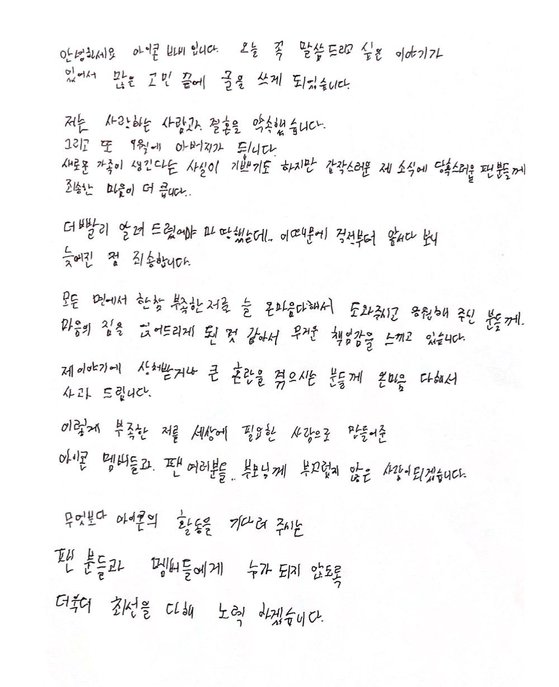 안녕하세요 아이콘 바비입니다. 오늘 꼭 말씀드리고 싶은 이야기가
있어서 많은 고민 끝에 글을 쓰게 되었습니다.
저는 사랑하는 사람과 결혼을 약속했습니다.
그리고 또 9월에 아버지가 됩니다.
새로운 가족이 생긴다는 사실이 기쁘기도 하지만 갑작스러운 제 소식에 당혹스러울 팬분들께
죄송한 마음이 더 큽니다..
더 빨리 알려 드렸어야 마땅했는데.. 이때문에 걱정부터 앞서다 보니
늦어진 점 죄송합니다.
모든 면에서 한참 부족한 저를 늘 온마음다해서 도와주시고 응원해 주신 분들께.
마음의 짐을 얹어드리게 된 것 같아서 무거운 책임감을 느끼고 있습니다.
제 이야기에 상처받거나 큰 혼란을 겪으시는 분들께 온마음 다해서
사과 드립니다.
이렇게 부족한 저를 세상에 필요한 사람으로 만들어준
아이콘 멤버들과. 팬 여러분들.. 부모님께 부끄럽지 않은 사람이되겠습니다.
무엇보다 아이콘의 활동을 기다려 주시는
팬 분들과 멤버들에게 누가 되지 않도록
더욱더 최선을 다해 노력 하겠습니다.